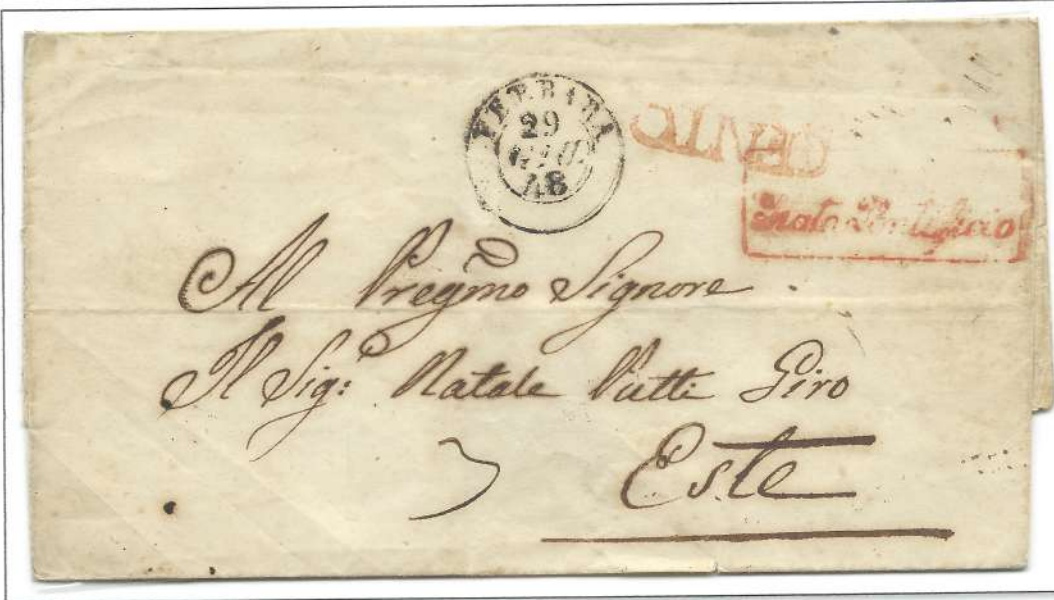 FERRARA
29
GIU
48
CENTO
Stato Pontificio
Al Pregmo Signore
Il Sig: Natale Giro
Este